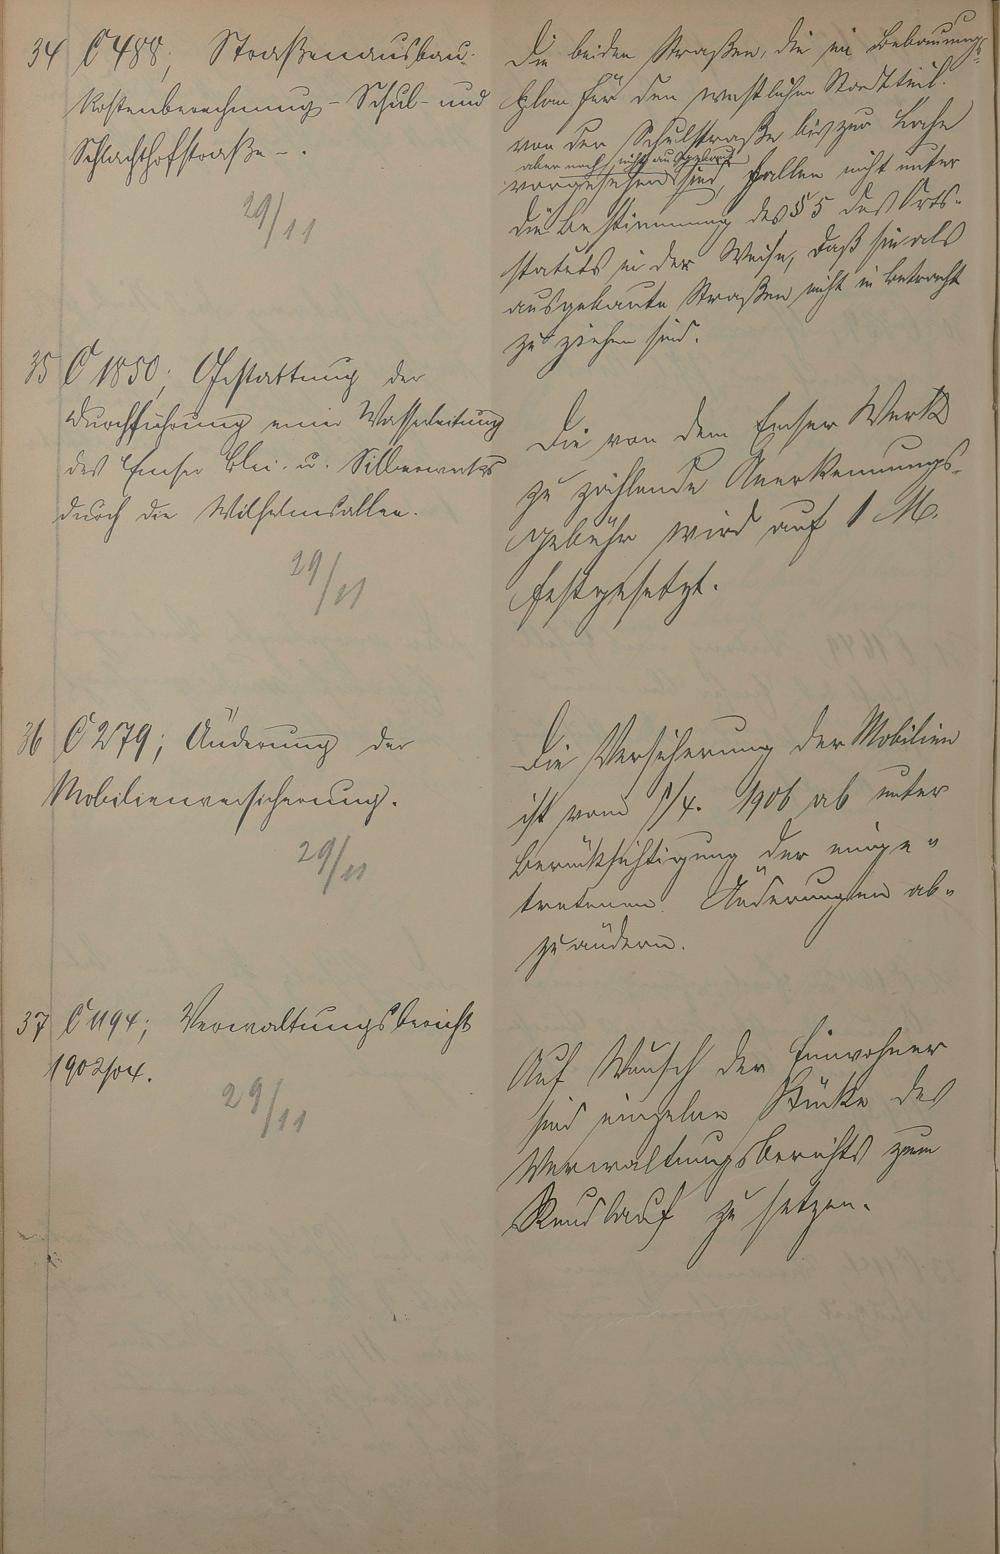 34 C 488; Straßenausbau-
kostenberechnung - Schul- und
Schlachthofstraße -.
29/11
Die beiden Straßen, die im Bebauungs-
plan für den westlichen Stadtteil
von der Schulstraße bis zur Lahn
aber noch nicht ausgebaut
vorgesehen sind, fallen nicht unter
die Bestimmung des § 5 des Orts-
statuts in der Weise, daß sie als
ausgebaute Straßen nicht in Betracht
zu ziehen sind.
35 C 1850; Gestattung der
Durchführung einer Wasserleitung
des Emser Blei- u. Silberwerks
durch die Wilhelmsallee.
29/11
Die von dem Emser Werk
zu zahlende Anerkennungs-
gebühr wird auf 1 M.
festgesetzt.
36 C 279; Änderung der
Mobilienversicherung.
29/11
Die Versicherung der Mobilien
ist vom 1/4. 1906 ab unter
Berücksichtigung der einge-
tretenen Änderungen ab-
zuändern.
37 C 1194; Verwaltungsbericht
1902/04.
29/11
Auf Wunsch der Einwohner
sind einzelne Stücke des
Verwaltungsberichts zum
Rundlauf zu setzen.